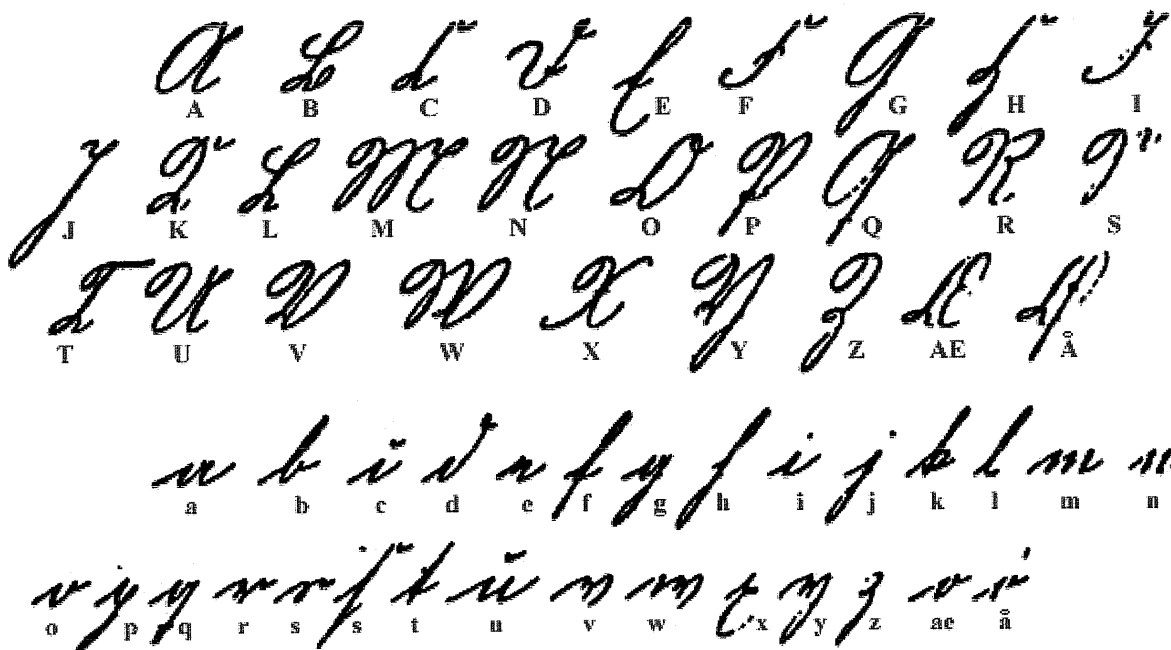 A B C D E F G H I
J K L M N O P Q R S
T U V W X Y Z AE Å
a b c d e f g h i j k l m n
o p q r s s t u v w x y z ae å